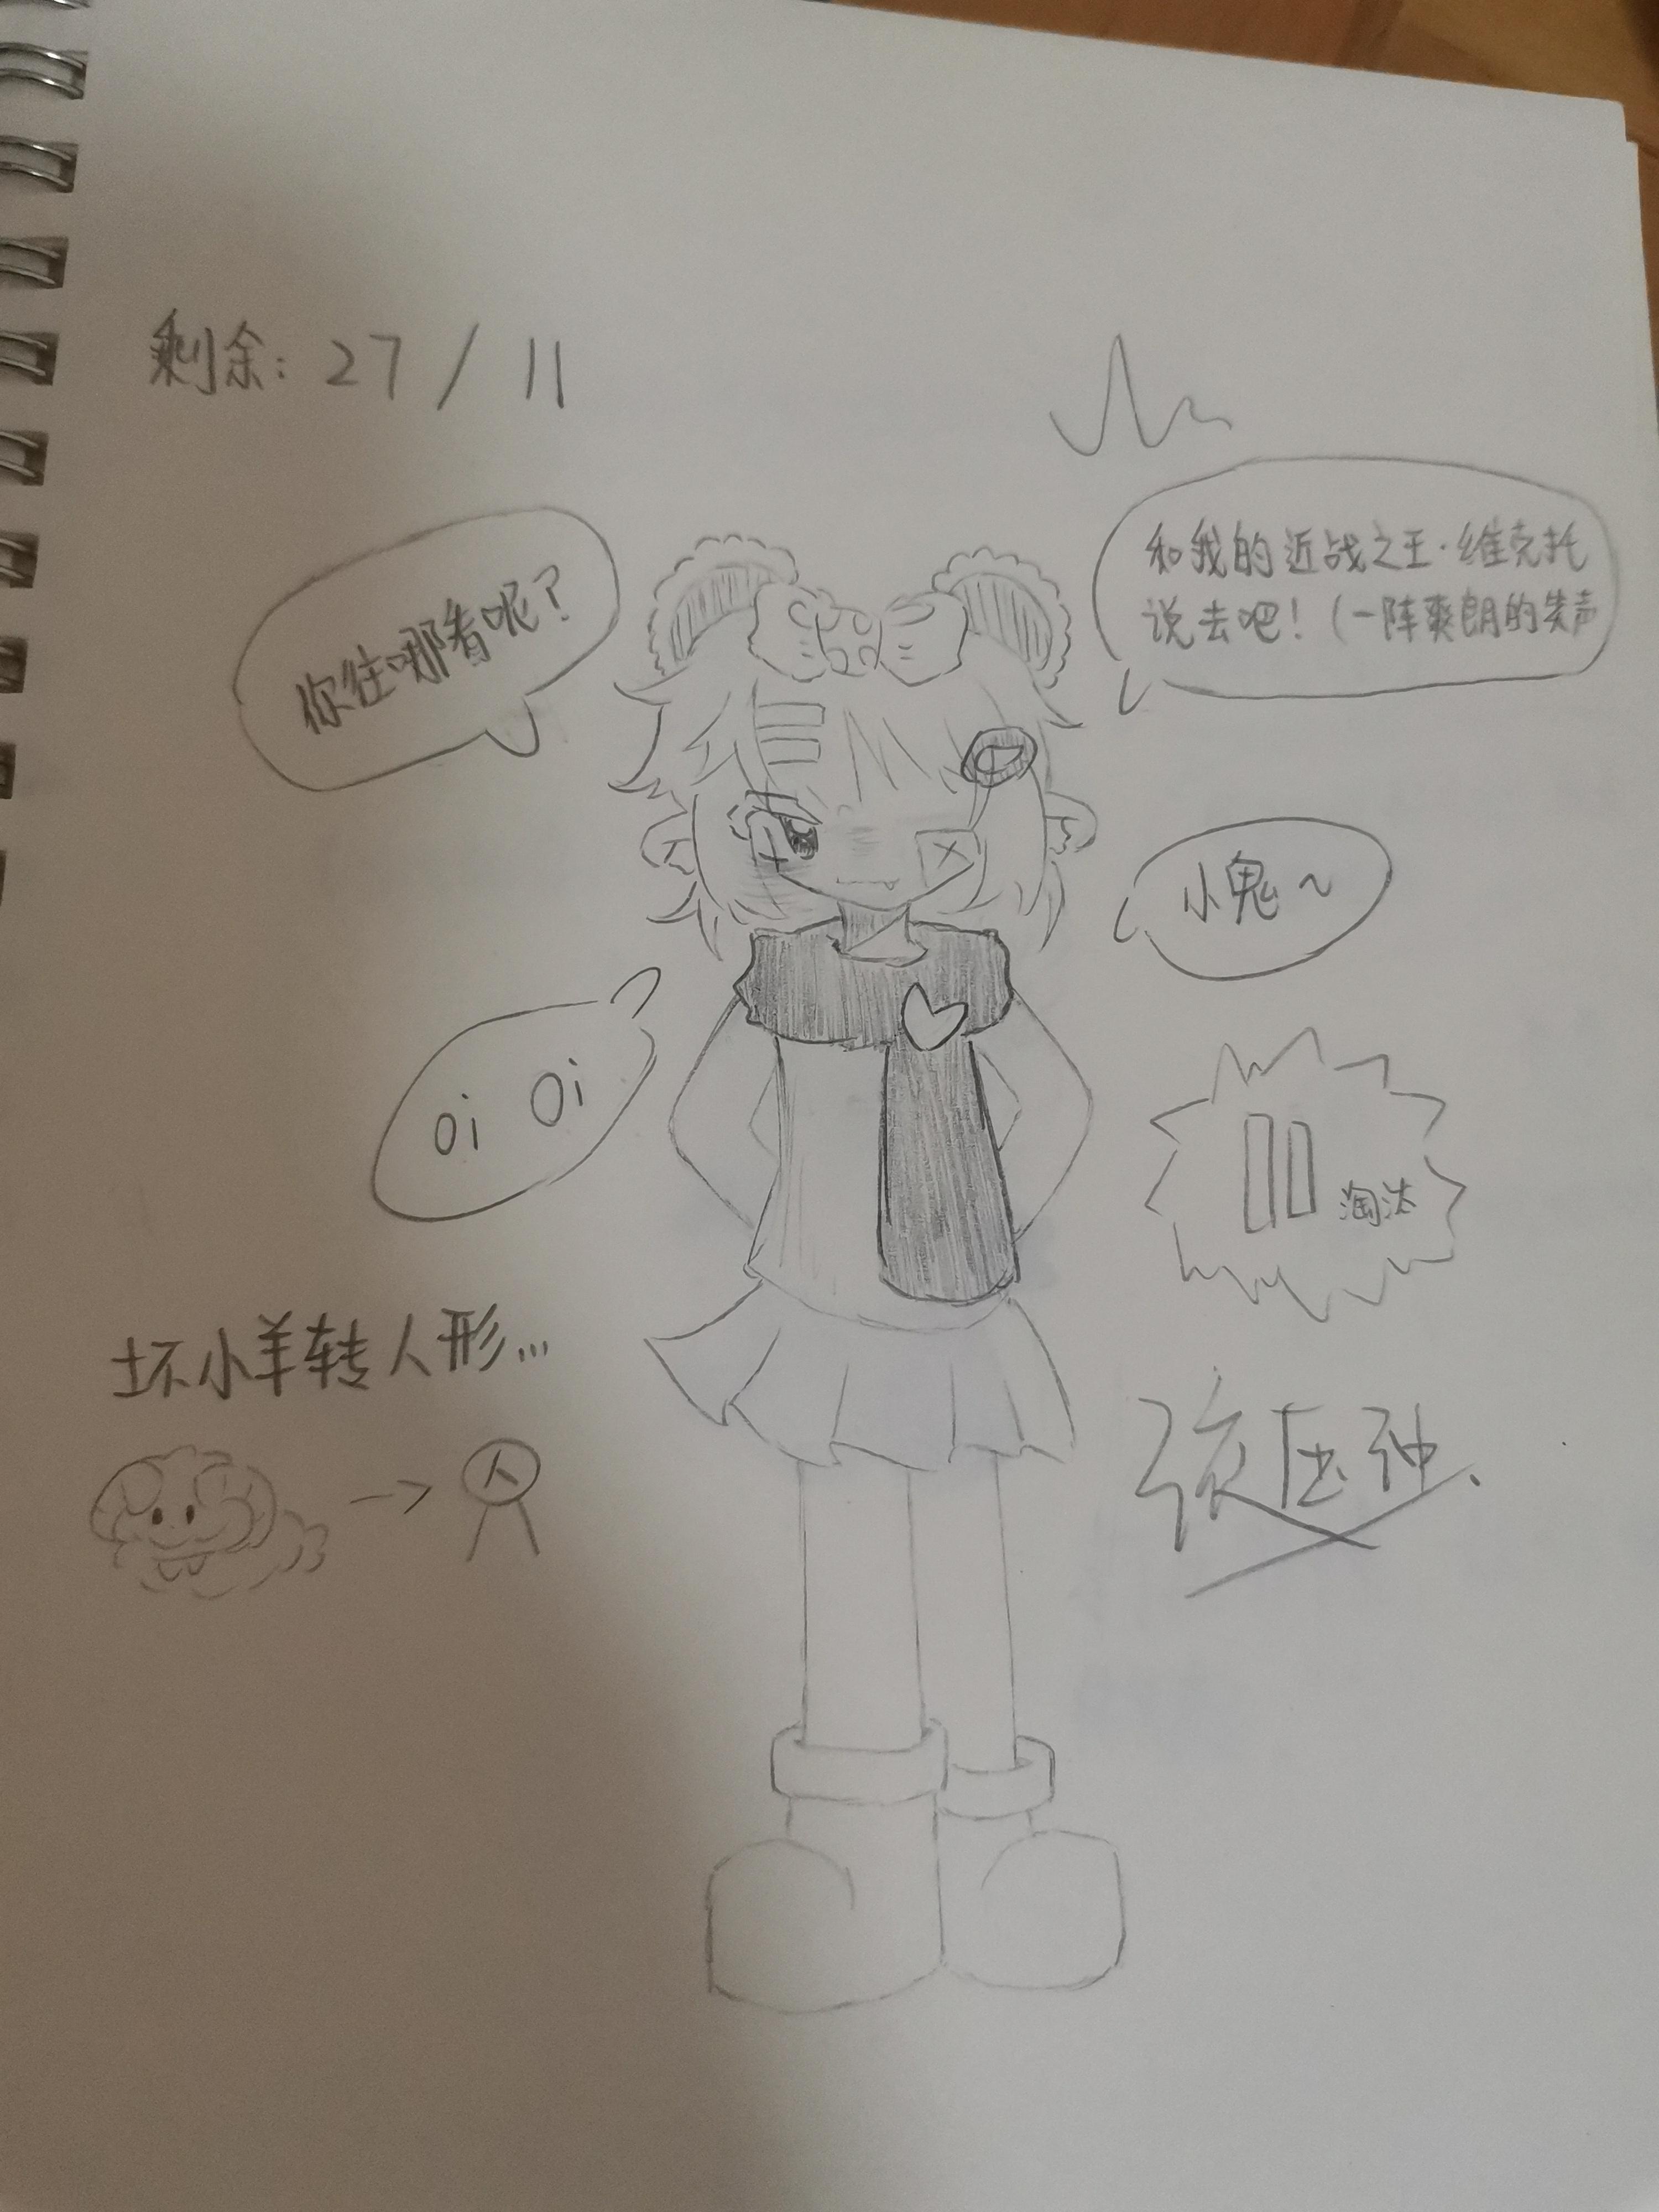 剩余: 27 / 11
你往哪看呢?
和我的近战之王·维克托
说去吧!(一阵爽朗的笑声
小鬼~
oi oi
11 淘汰
坏小羊转人形...
人